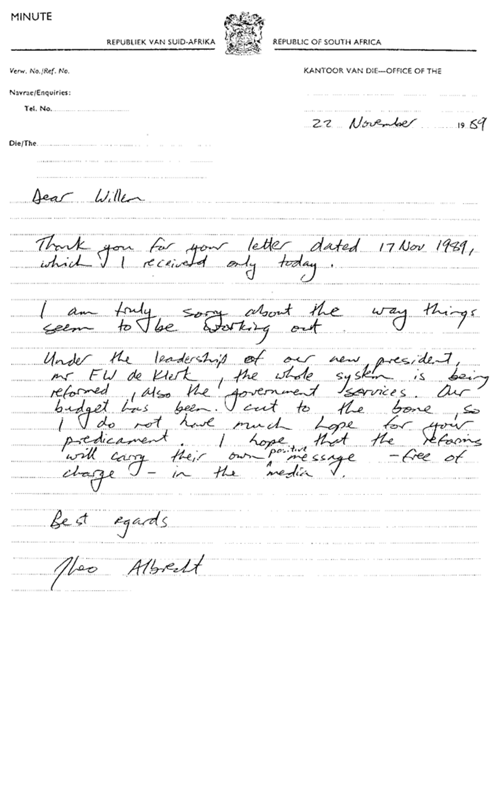 MINUTE
REPUBLIEK VAN SUID-AFRIKA REPUBLIC OF SOUTH AFRICA
Verw. No./Ref. No.
KANTOOR VAN DIE—OFFICE OF THE
Navrae/Enquiries:
Tel. No.
22 November 1989
Die/The
Dear Willem
Thank you for your letter dated 17 Nov 1989,
which I received only today.
I am truly sorry about the way things
seem to be working out.
Under the leadership of our new president,
mr FW de Klerk, the whole system is being
reformed, also the government services. Our
budget has been cut to the bone, so
I do not have much hope for your
predicament. I hope that the reforms
will carry their own positive message - free of
charge - in the media.
Best regards
Theo Albrecht